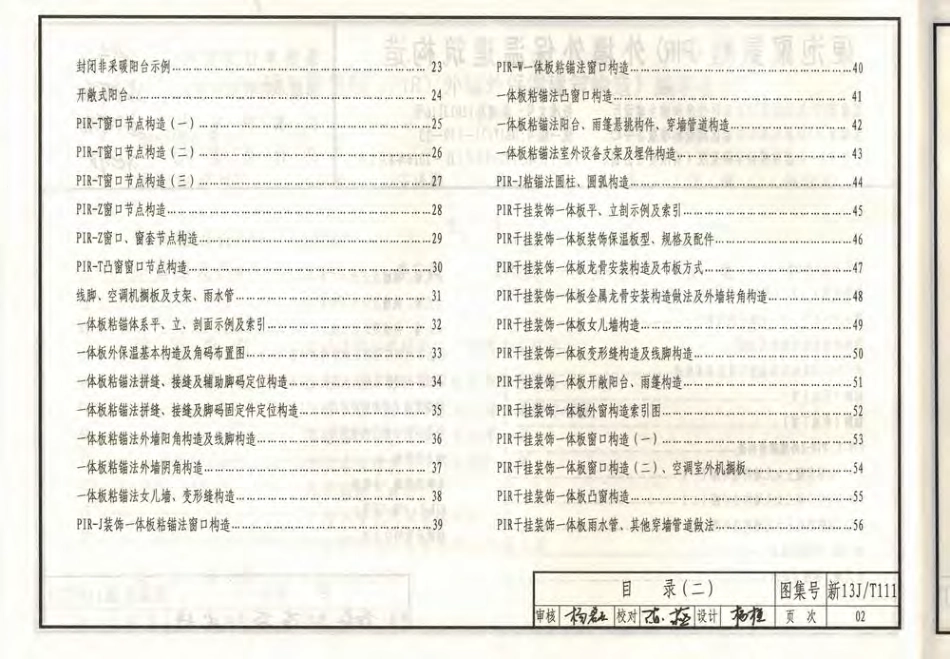 封闭非采暖阳台示例 23
开敞式阳台 24
PIR-T窗口节点构造(一) 25
PIR-T窗口节点构造(二) 26
PIR-T窗口节点构造(三) 27
PIR-Z窗口节点构造 28
PIR-Z窗口、窗套节点构造 29
PIR-T凸窗窗口节点构造 30
线脚、空调机搁板及支架、雨水管 31
一体板粘锚体系平、立、剖面示例及索引 32
一体板外保温基本构造及角码布置图 33
一体板粘锚法拼缝、接缝及辅助脚码定位构造 34
一体板粘锚法拼缝、接缝及脚码固定件定位构造 35
一体板粘锚法外墙阳角构造及线脚构造 36
一体板粘锚法外墙阴角构造 37
一体板粘锚法女儿墙、变形缝构造 38
PIR-J装饰一体板粘锚法窗口构造 39
PIR-W一体板粘锚法窗口构造 40
一体板粘锚法凸窗口构造 41
一体板粘锚法阳台、雨篷悬挑构件、穿墙管道构造 42
一体板粘锚法室外设备支架及埋件构造 43
PIR-J粘锚法圆柱、圆弧构造 44
PIR干挂装饰一体板平、立剖示例及索引 45
PIR干挂装饰一体板装饰保温板型、规格及配件 46
PIR干挂装饰一体板龙骨安装构造及布板方式 47
PIR干挂装饰一体板金属龙骨安装构造做法及外墙转角构造 48
PIR干挂装饰一体板女儿墙构造 49
PIR干挂装饰一体板变形缝构造及线脚构造 50
PIR干挂装饰一体板开敞阳台、雨蓬构造 51
PIR干挂装饰一体板外窗构造索引图 52
PIR干挂装饰一体板窗口构造(一) 53
PIR干挂装饰一体板窗口构造(二)、空调室外机搁板 54
PIR干挂装饰一体板凸窗构造 55
PIR干挂装饰一体板雨水管、其他穿墙管道做法 56
目 录(二) 图集号 新13J/T111
审核 校对 设计 页 次 02